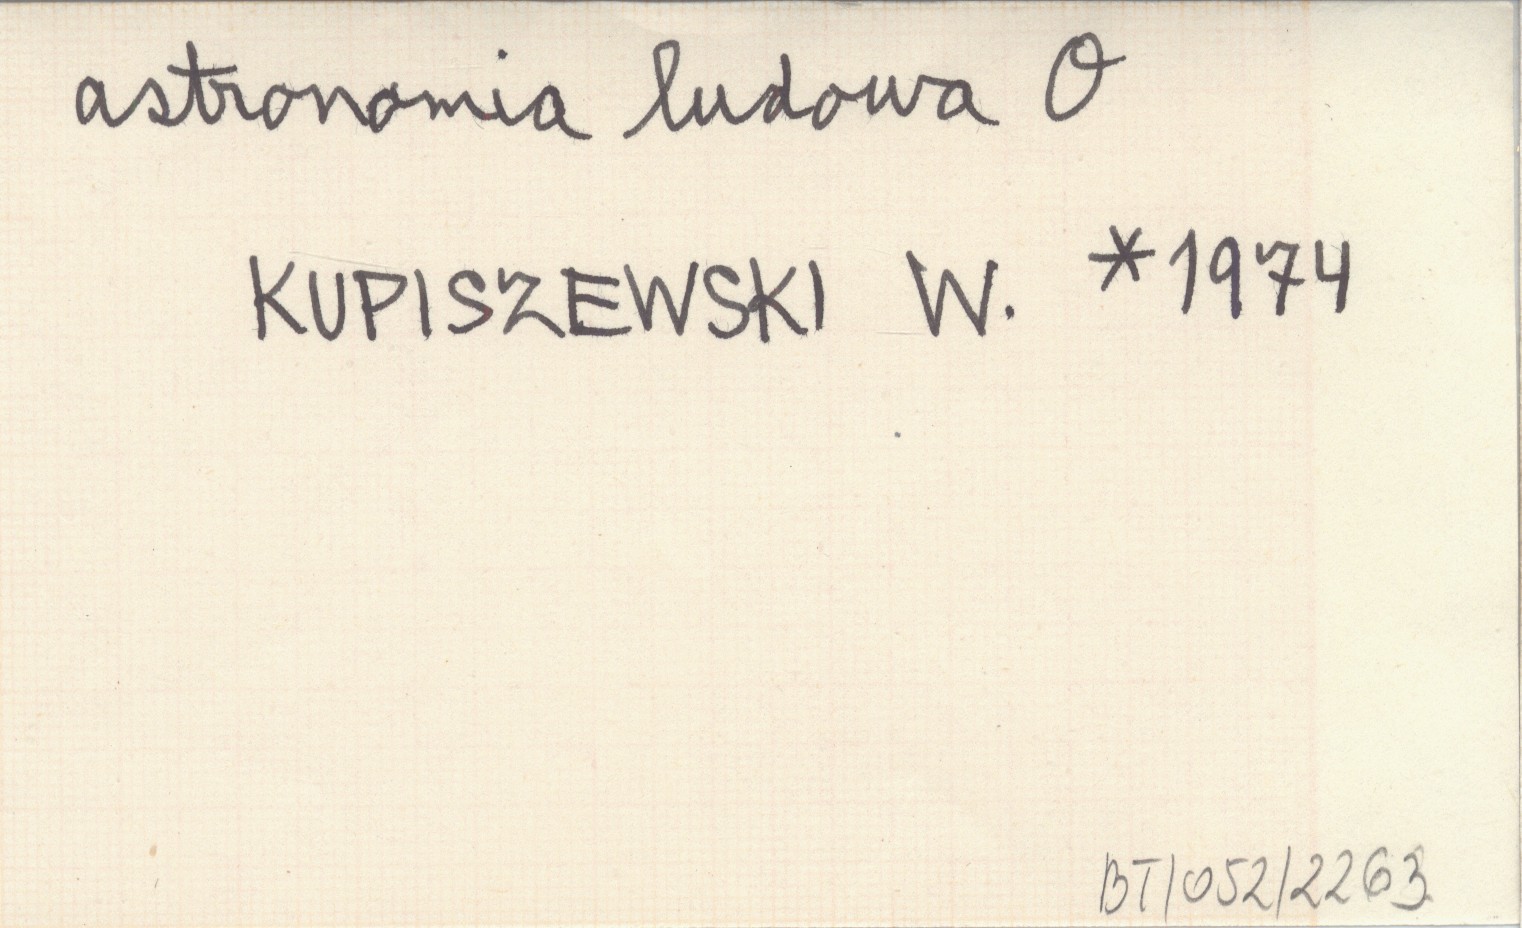 astronomia ludowa O
KUPISZEWSKI W. *1974
BT/052/2263